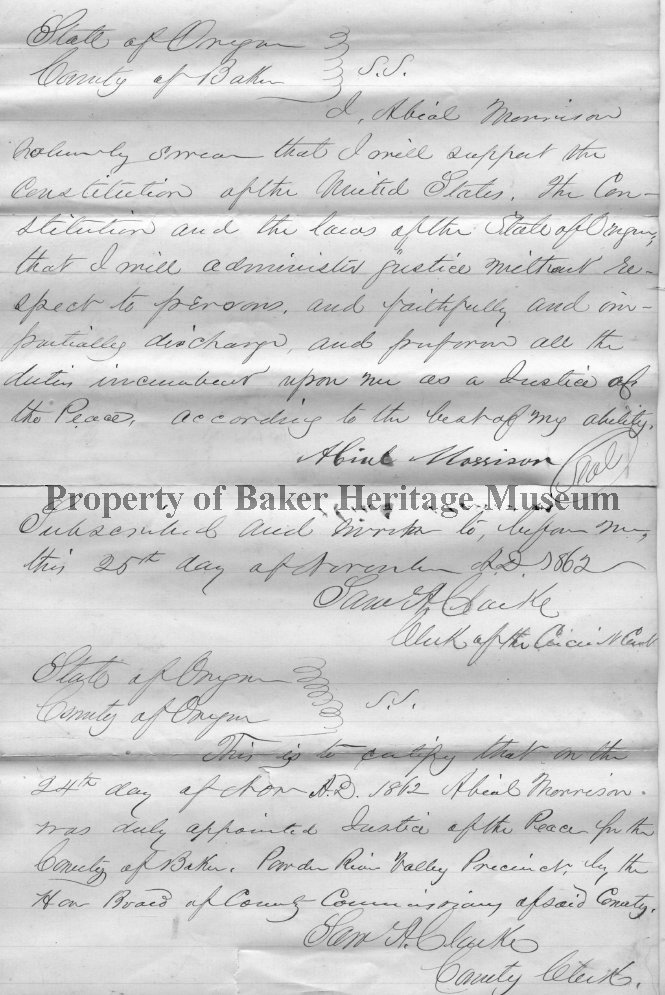 State of Oregon
County of Baker } S.S.
I, Abial Morrison
solumnly swear that I will support the
Constitution of the United States. The Con-
stitution and the laws of the State of Oregon,
that I will administer justice without re-
spect to persons. and faithfully and im-
partially discharge, and preform all the
duties incumbent upon me as a Justice of
the Peace, according to the best of my ability.
Abial Morrison (Seal)
Property of Baker Heritage Museum
Subscribed and sworn to, before me,
this 25th day of November A.D. 1862
Saml A. Clarke
Clerk of the Circuit Court
State of Oregon
County of Oregon } S.S.
This is to certify that on the
24th day of Nov A.D. 1862 Abial Morrison
was duly appointed Justice of the Peace for the
County of Baker. Powder River Valley Precinct, by the
Hon Board of County Commissioners of said County.
Saml A. Clarke
County Clerk.